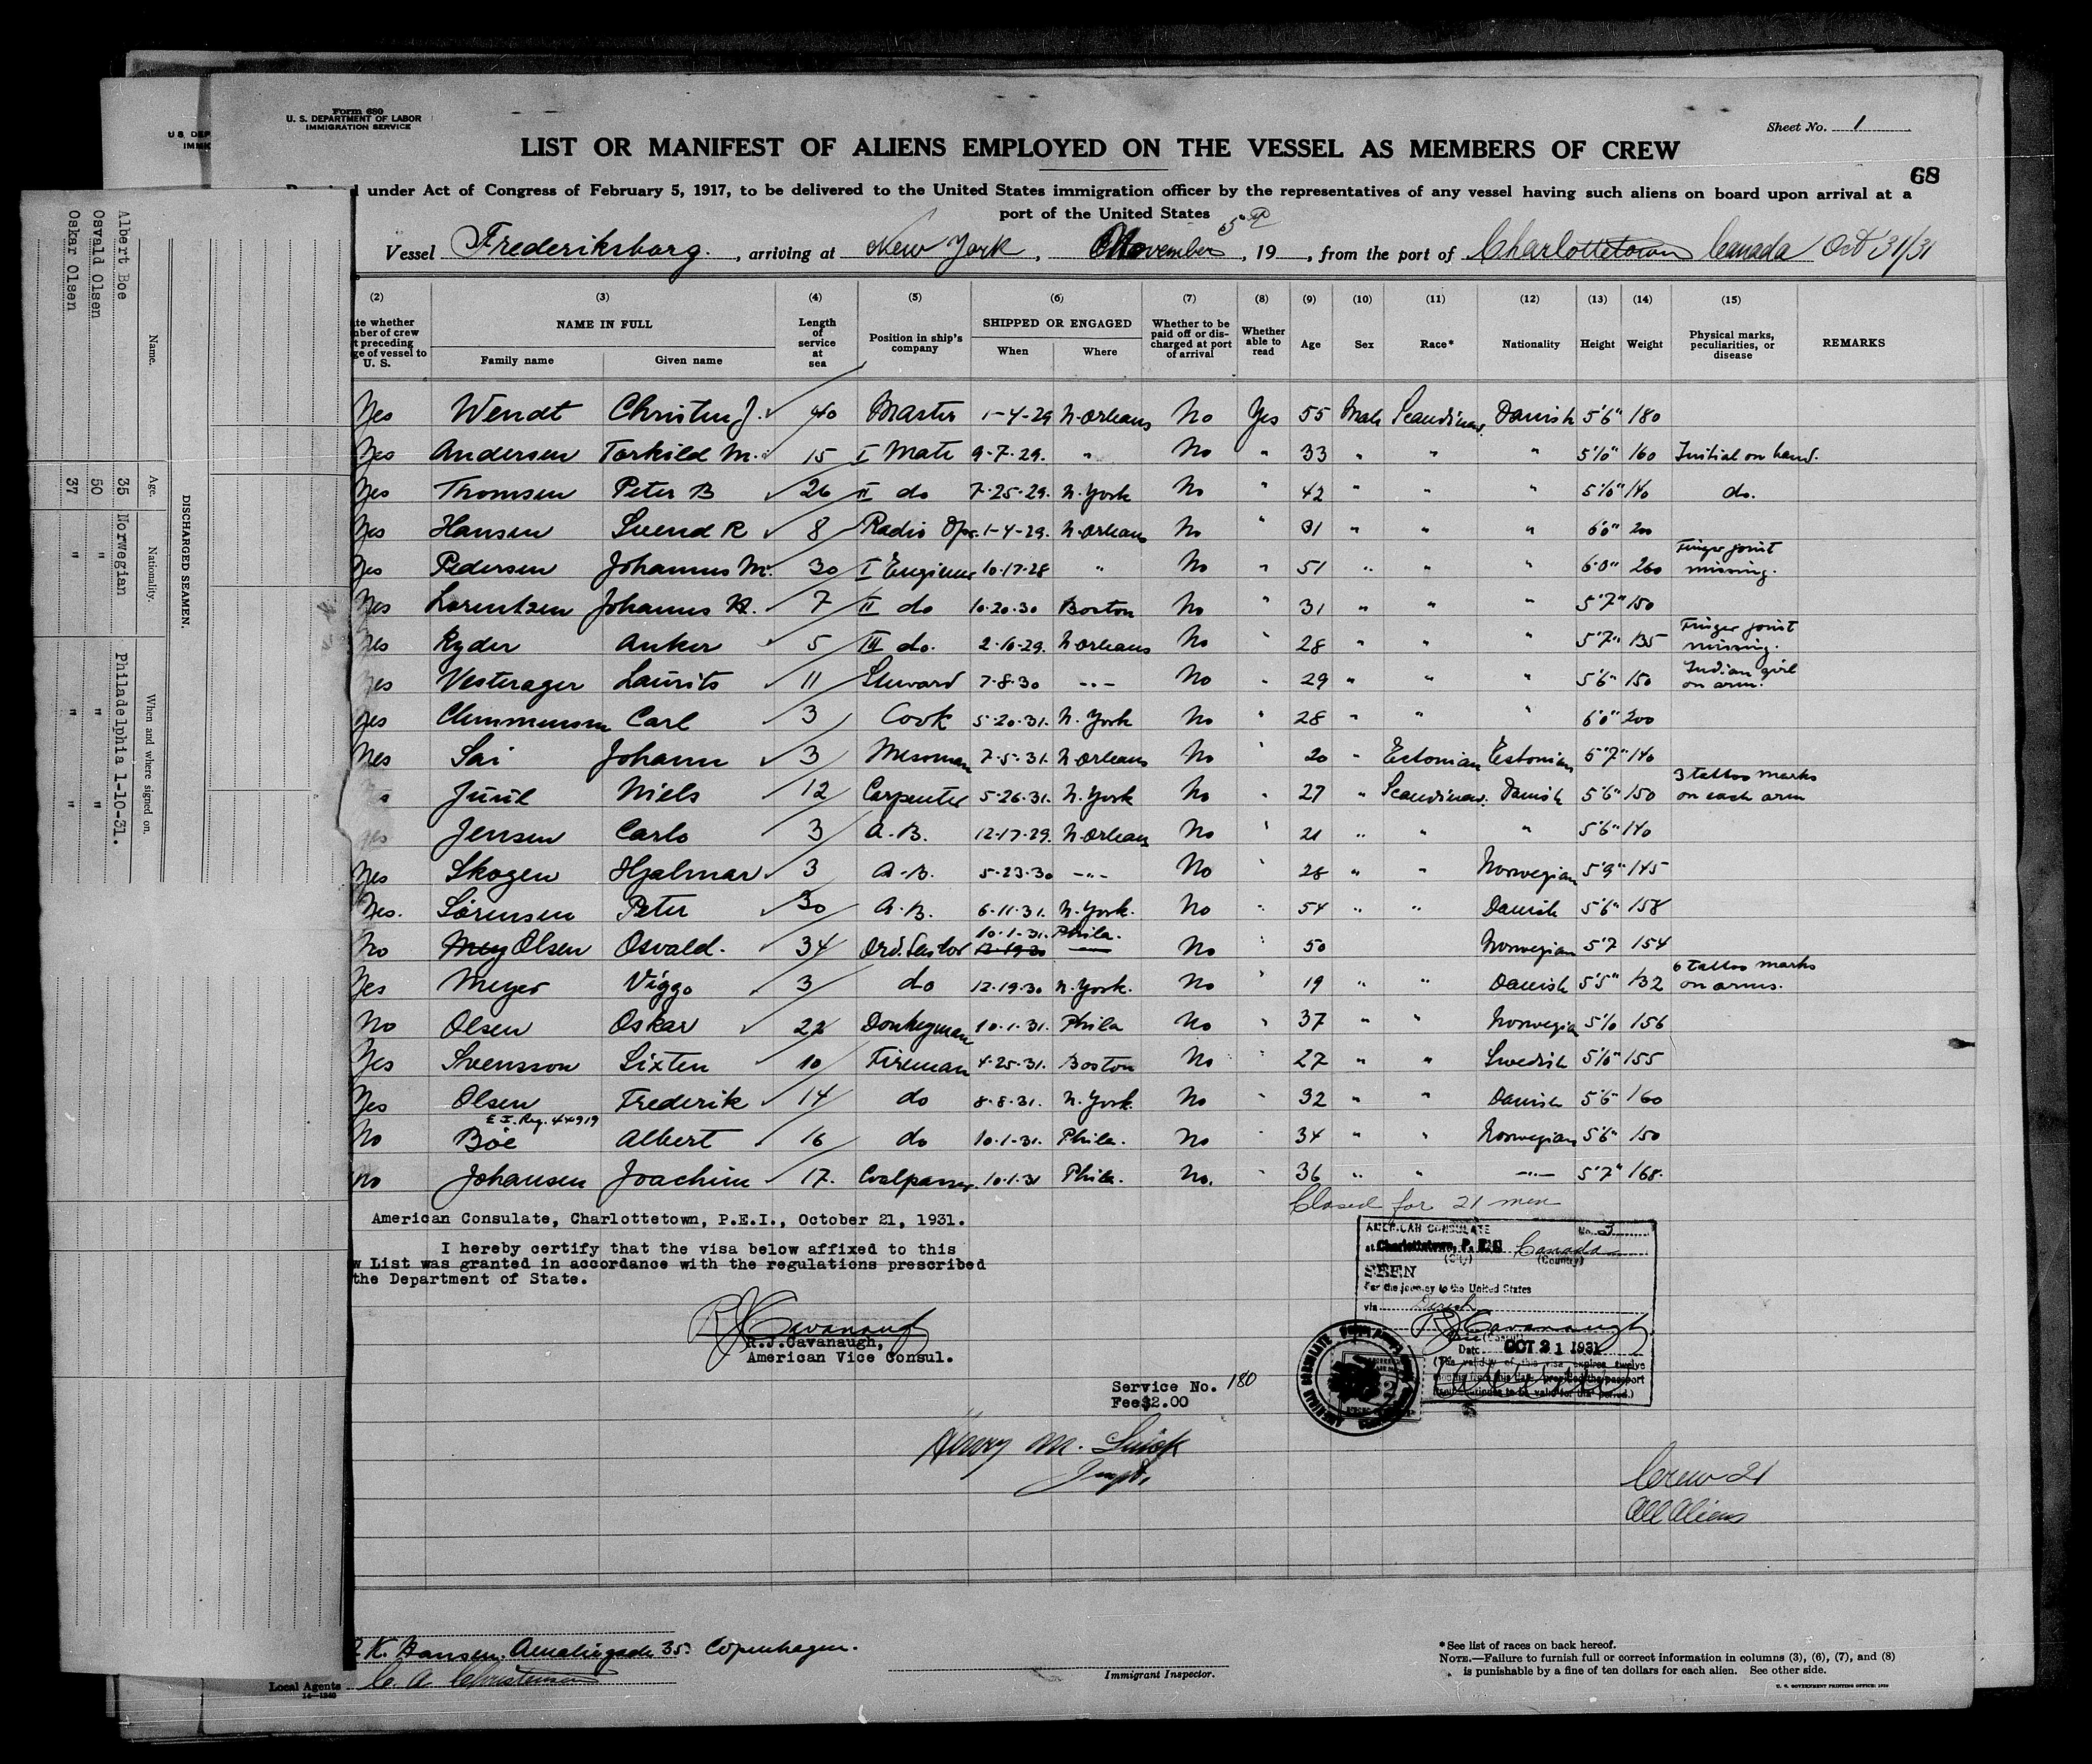 Form 680
U. S. DEPARTMENT OF LABOR
IMMIGRATION SERVICE
U S DEP
IMMI
Sheet No. 1
LIST OR MANIFEST OF ALIENS EMPLOYED ON THE VESSEL AS MEMBERS OF CREW
68
under Act of Congress of February 5, 1917, to be delivered to the United States immigration officer by the representatives of any vessel having such aliens on board upon arrival at a
port of the United States
Vessel Frederiksborg. , arriving at New York , November 5th , 19 , from the port of Charlottetown Canada Oct 31/31
(2) (3) (4) (5) (6) (7) (8) (9) (10) (11) (12) (13) (14) (15)
te whether
mber of crew
t preceding
ge of vessel to
U. S.
NAME IN FULL
Family name Given name
Length
of
service
at
sea
Position in ship's
company
SHIPPED OR ENGAGED
When Where
Whether to be
paid off or dis-
charged at port
of arrival
Whether
able to
read
Age Sex Race* Nationality Height Weight
Physical marks,
peculiarities, or
disease
REMARKS
Yes Wendt Christen J. 40 Master 1-4-29 N. Orleans No Yes 55 Male Scandinav. Danish 5'6" 180
Yes Andersen Torkild M. 15 I Mate 9-7-29. " No " 33 " " " 5'10" 160 Initial on hand.
Yes Thomsen Peter B 26 II do 7-25-29. N. York No " 42 " " " 5'10" 140 do.
Yes Hansen Svend R 8 Radio Opr. 1-4-29. N. Orleans No " 31 " " " 6'0" 200
Yes Pedersen Johannes M. 30 I Engineer 10-17-28 " No " 51 " " " 6'0" 260 Finger joint missing.
Yes Lorentzen Johannes H. 7 II do 10-20-30 Boston No " 31 " " " 5'7" 150
Yes Ryder Anker 5 III do. 2-16-29. N. Orleans No " 28 " " " 5'7" 135 Finger joint missing.
Yes Vesterager Laurits 11 Steward 7-8-30 -"- No " 29 " " " 5'6" 150 Indian girl on arm.
Yes Clemmensen Carl 3 Cook 5-20-31. N. York No " 28 " " " 6'0" 200
Yes Sai Johann 3 Messman 7-5-31. N. Orleans No " 20 " Estonian Estonian 5'7" 140
Juul Niels 12 Carpenter 5-26-31. N. York No " 27 " Scandinav. Danish 5'6" 150 3 tattoo marks on each arm
Yes Jensen Carlo 3 A.B. 12-17-29. N. Orleans No " 21 " " " 5'6" 140
Yes Skogen Hjalmar 3 A.B. 5-23-30 -"- No " 28 " " Norwegian 5'9" 145
Yes. Sörensen Peter 30 A.B. 6-11-31. N. York. No " 54 " " Danish 5'6" 158
No Mey Olsen Osvald. 34 Ord. Sailor 10-1-31. Phila. 12-19-30 No " 50 Norwegian 5'7 154
Yes Meyer Viggo 3 do 12-19-30 N. York. No " 19 " " Danish 5'5" 132 6 tattoo marks on arms.
No Olsen Oskar 22 Donkeyman 10-1-31. Phila No " 37 " " Norwegian 5'10 156
Yes Svensson Sixten 10 Fireman 4-25-31. Boston No " 27 " " Swedish 5'10" 155
Yes Olsen Frederik 14 do 8-8-31. N. York. No " 32 " " Danish 5'6" 160
E.I. Reg. 44919
No Böe Albert 16 do 10-1-31. Phila. No " 34 " " Norwegian 5'6" 150
No Johansen Joachim 17. Coalpasser 10-1-31 Phila. No. " 36 " " -"- 5'7" 168.
Closed for 21 men
American Consulate, Charlottetown, P.E.I., October 21, 1931.
I hereby certify that the visa below affixed to this
w List was granted in accordance with the regulations prescribed
the Department of State.
R J Cavanaugh
R.J.Cavanaugh,
American Vice Consul.
Service No. 180
Fee$2.00
AMERICAN CONSULATE No. 3
at Charlottetown, P.E.I. Canada
(City) (Country)
SEEN
For the journey to the United States
via Direct
R J Cavanaugh
Date OCT 21 1931
(The validity of this visa expires twelve
months from this date, provided the passport
continues to be valid for that period.)
Henry M.
Inspt.
Crew 21
All Aliens
K. Hansen. Amaliegade 35. Copenhagen.
Local Agents C. A. Christensen
14—1240
Immigrant Inspector.
*See list of races on back hereof.
NOTE.—Failure to furnish full or correct information in columns (3), (6), (7), and (8)
is punishable by a fine of ten dollars for each alien. See other side.
U. S. GOVERNMENT PRINTING OFFICE: 1930
DISCHARGED SEAMEN.
Name. Age. Nationality. When and where signed on.
Albert Boe 35 Norwegian Philadelphia 1-10-31.
Osvald Olsen 50 " "
Oskar Olsen 37 " "